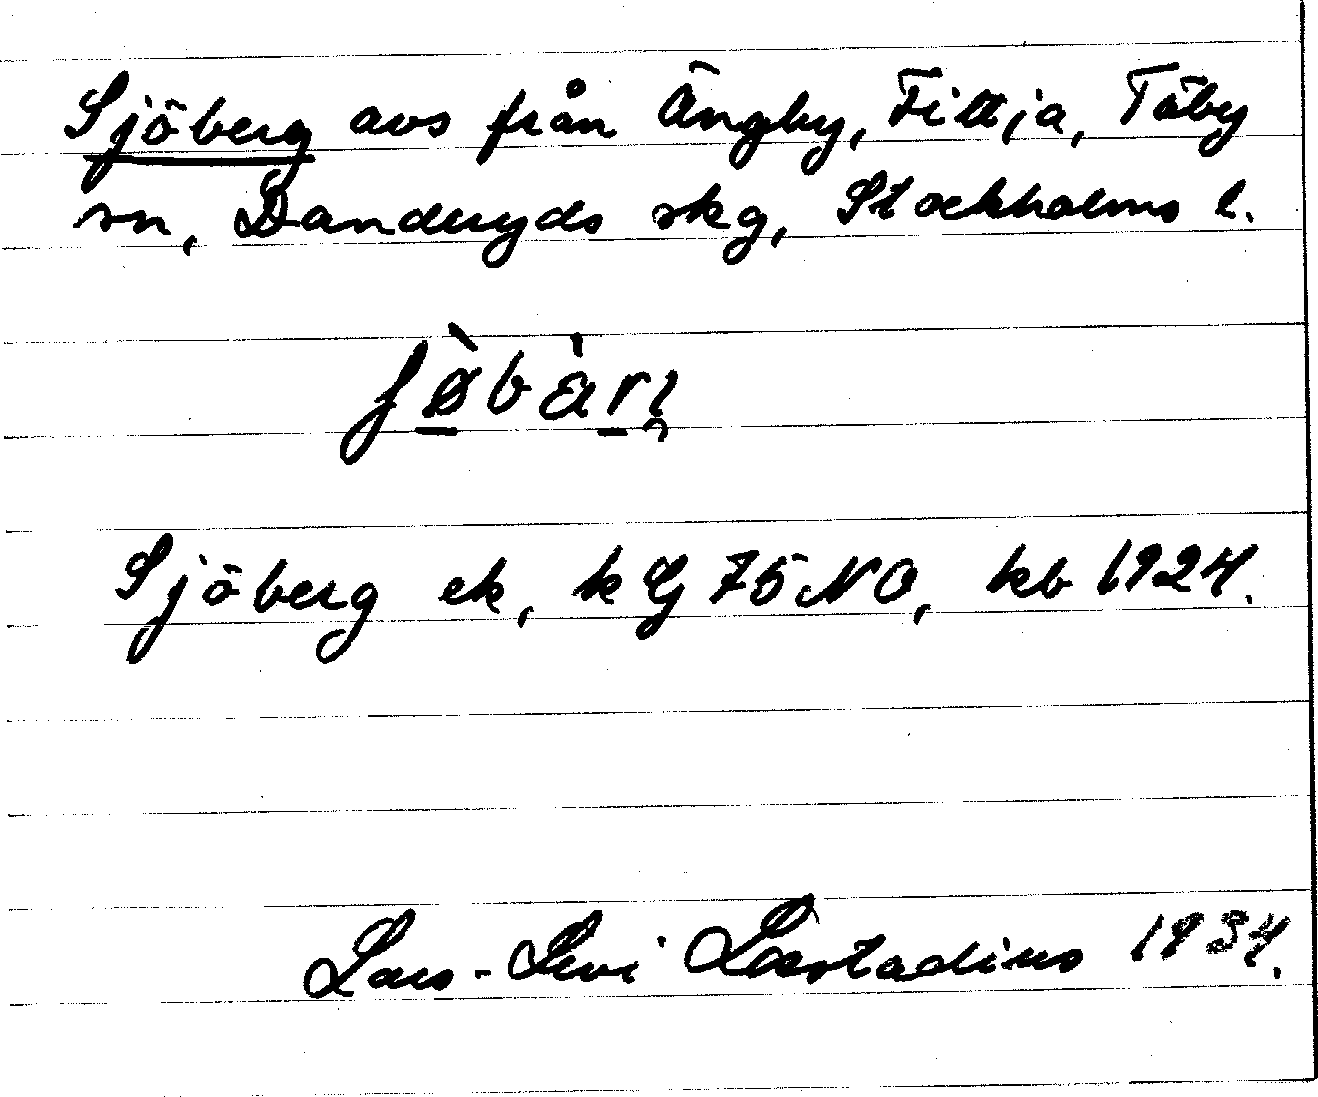 Sjöberg avs från Ängby, Fittja, Täby
sn, Danderyds skg, Stockholms l.
Sjöberg ek, k G 75 NO, kb 1924.
Lars-Levi Læstadius 1934.